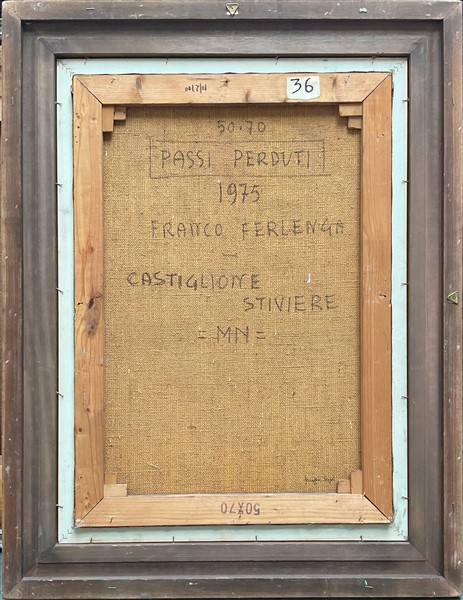 36
50·70
PASSI PERDUTI
1975
FRANCO FERLENGA
CASTIGLIONE
STIVIERE
= MN =
50X70